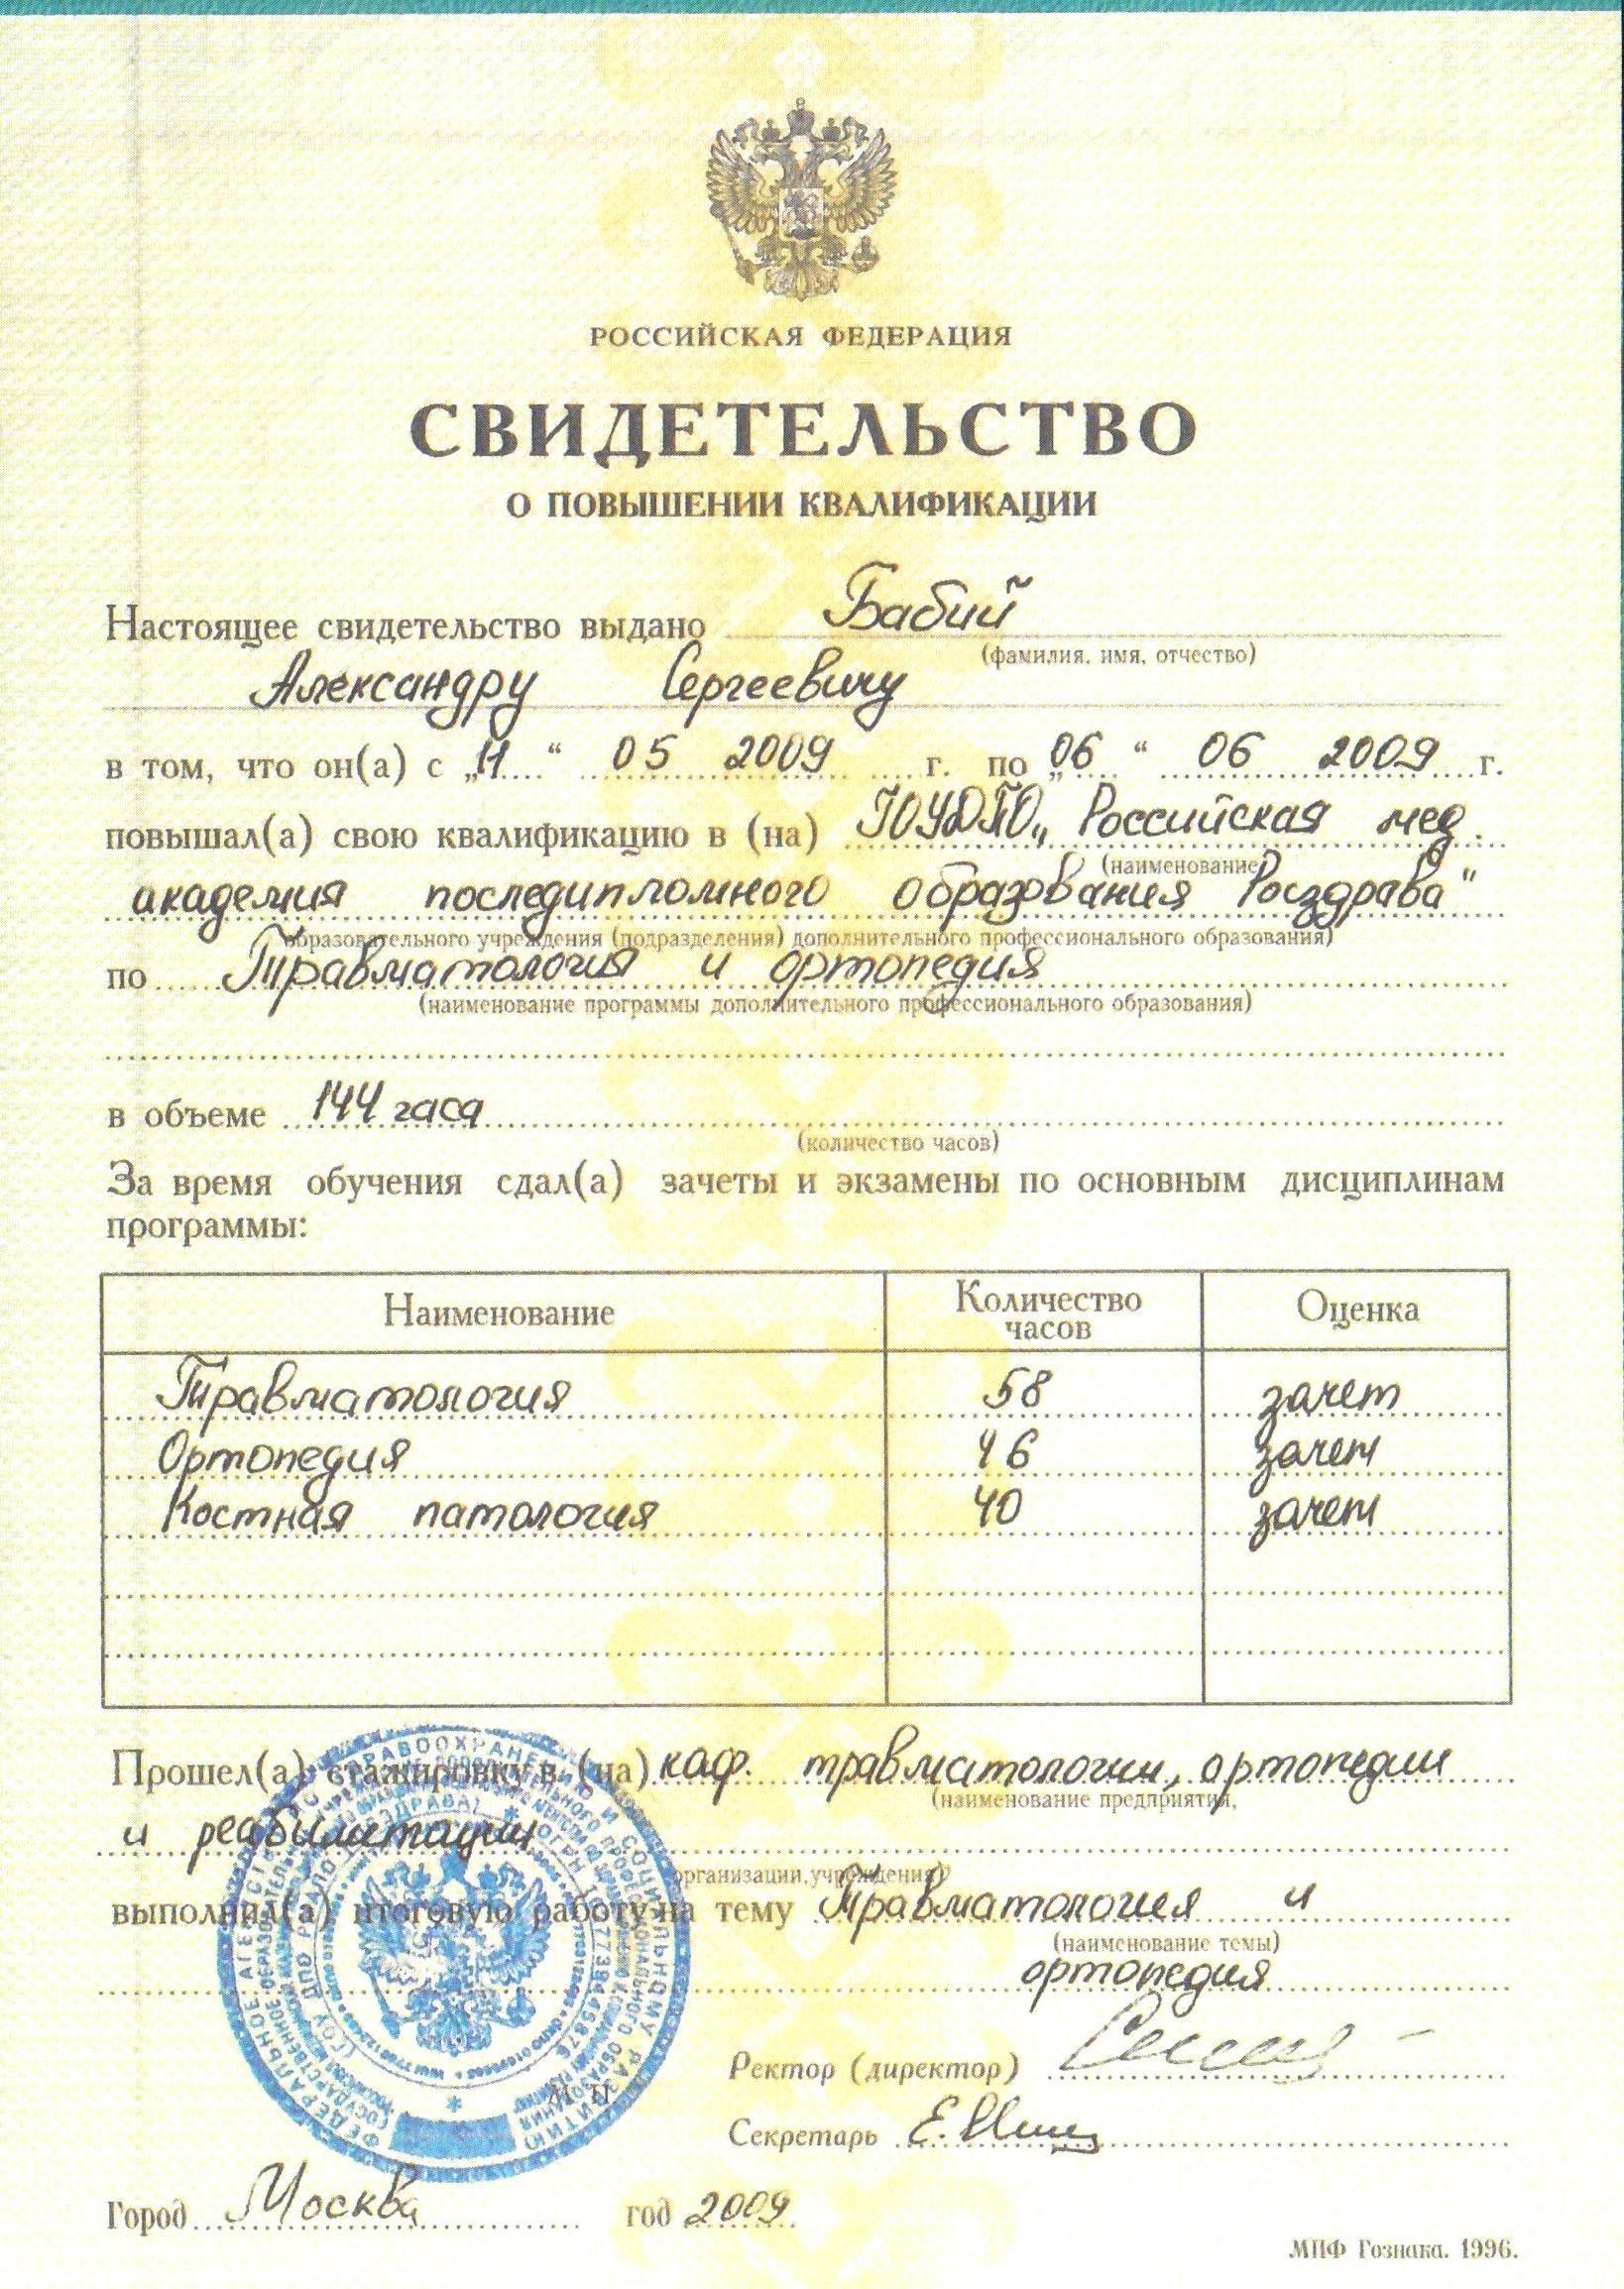 РОССИЙСКАЯ ФЕДЕРАЦИЯ
СВИДЕТЕЛЬСТВО
О ПОВЫШЕНИИ КВАЛИФИКАЦИИ
Настоящее свидетельство выдано Бабий
(фамилия, имя, отчество)
Александру Сергеевичу
в том, что он(а) с „11“ 05 2009 г. по „06“ 06 2009 г.
повышал(а) свою квалификацию в (на) ГОУДПО „Российская мед.
(наименование
академия последипломного образования Росздрава"
образовательного учреждения (подразделения) дополнительного профессионального образования)
по Травматология и ортопедия
(наименование программы дополнительного профессионального образования)
в объеме 144 часа
(количество часов)
За время обучения сдал(а) зачеты и экзамены по основным дисциплинам
программы:
Наименование Количество часов Оценка
Травматология 58 зачет
Ортопедия 46 зачет
Костная патология 40 зачет
Прошел(а) стажировку в (на) каф. травматологии, ортопедии
(наименование предприятия,
и реабилитации
организации, учреждения)
выполнил(а) итоговую работу на тему Травматология и
(наименование темы)
ортопедия
Ректор (директор)
Секретарь
М. П.
Город Москва год 2009
МПФ Гознака. 1996.